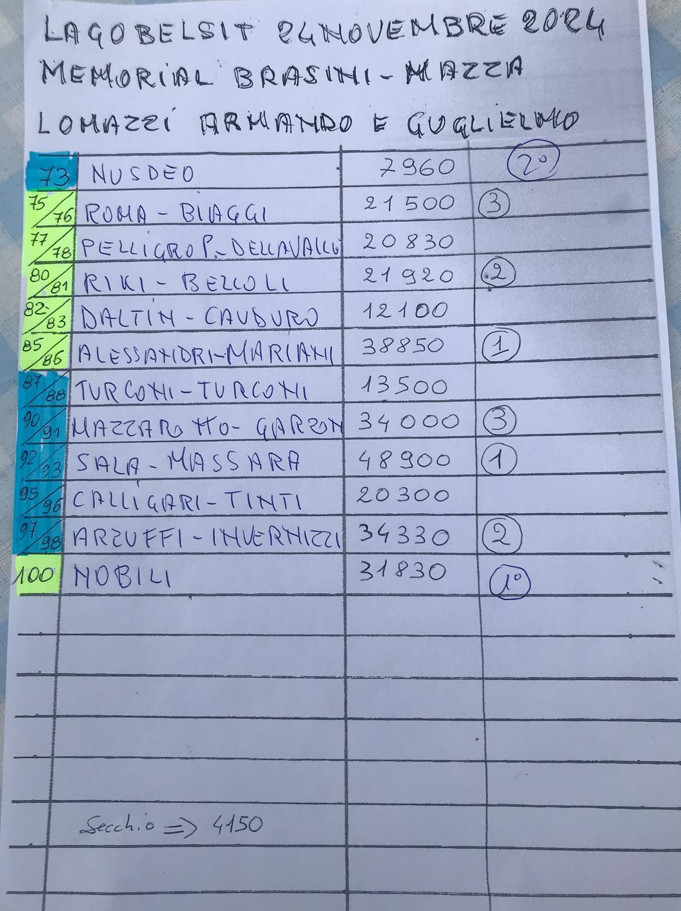 LAGOBELSIT 24 NOVEMBRE 2024
MEMORIAL BRASINI-MAZZA
LOMAZZI ARMANDO E GUGLIELMO
73 NUSDEO 7960 2°
75/76 ROMA-BIAGGI 21500 3
77/78 PELLIGRO P.-DELLAVALLE 20830
80/81 RIKI-BELLOLI 21920 2
82/83 DALTIN-CAUDURO 12100
85/86 ALESSANDRI-MARIANI 38850 1
87/88 TURCONI-TURCONI 13500
90/91 MAZZAROTTO-GARZON 34000 3
92/93 SALA-MASSARA 48900 1
95/96 CALLIGARI-TINTI 20300
97/98 ARZUFFI-INVERNIZZI 34330 2
100 NOBILI 31830 1°
Secchio => 4150